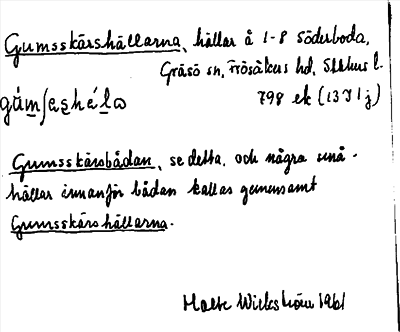 Gumsskärshällarna, hällar å 1-8 Söderboda,
Gräsö sn, Frösåkers hd, Sthlms l.
798 ek (13 I 1 j)
Gumsskärsbådan, se detta, och några små-
hällar innanför bådan kallas gemensamt
Gumsskärshällarna.
Malte Wickström 1961